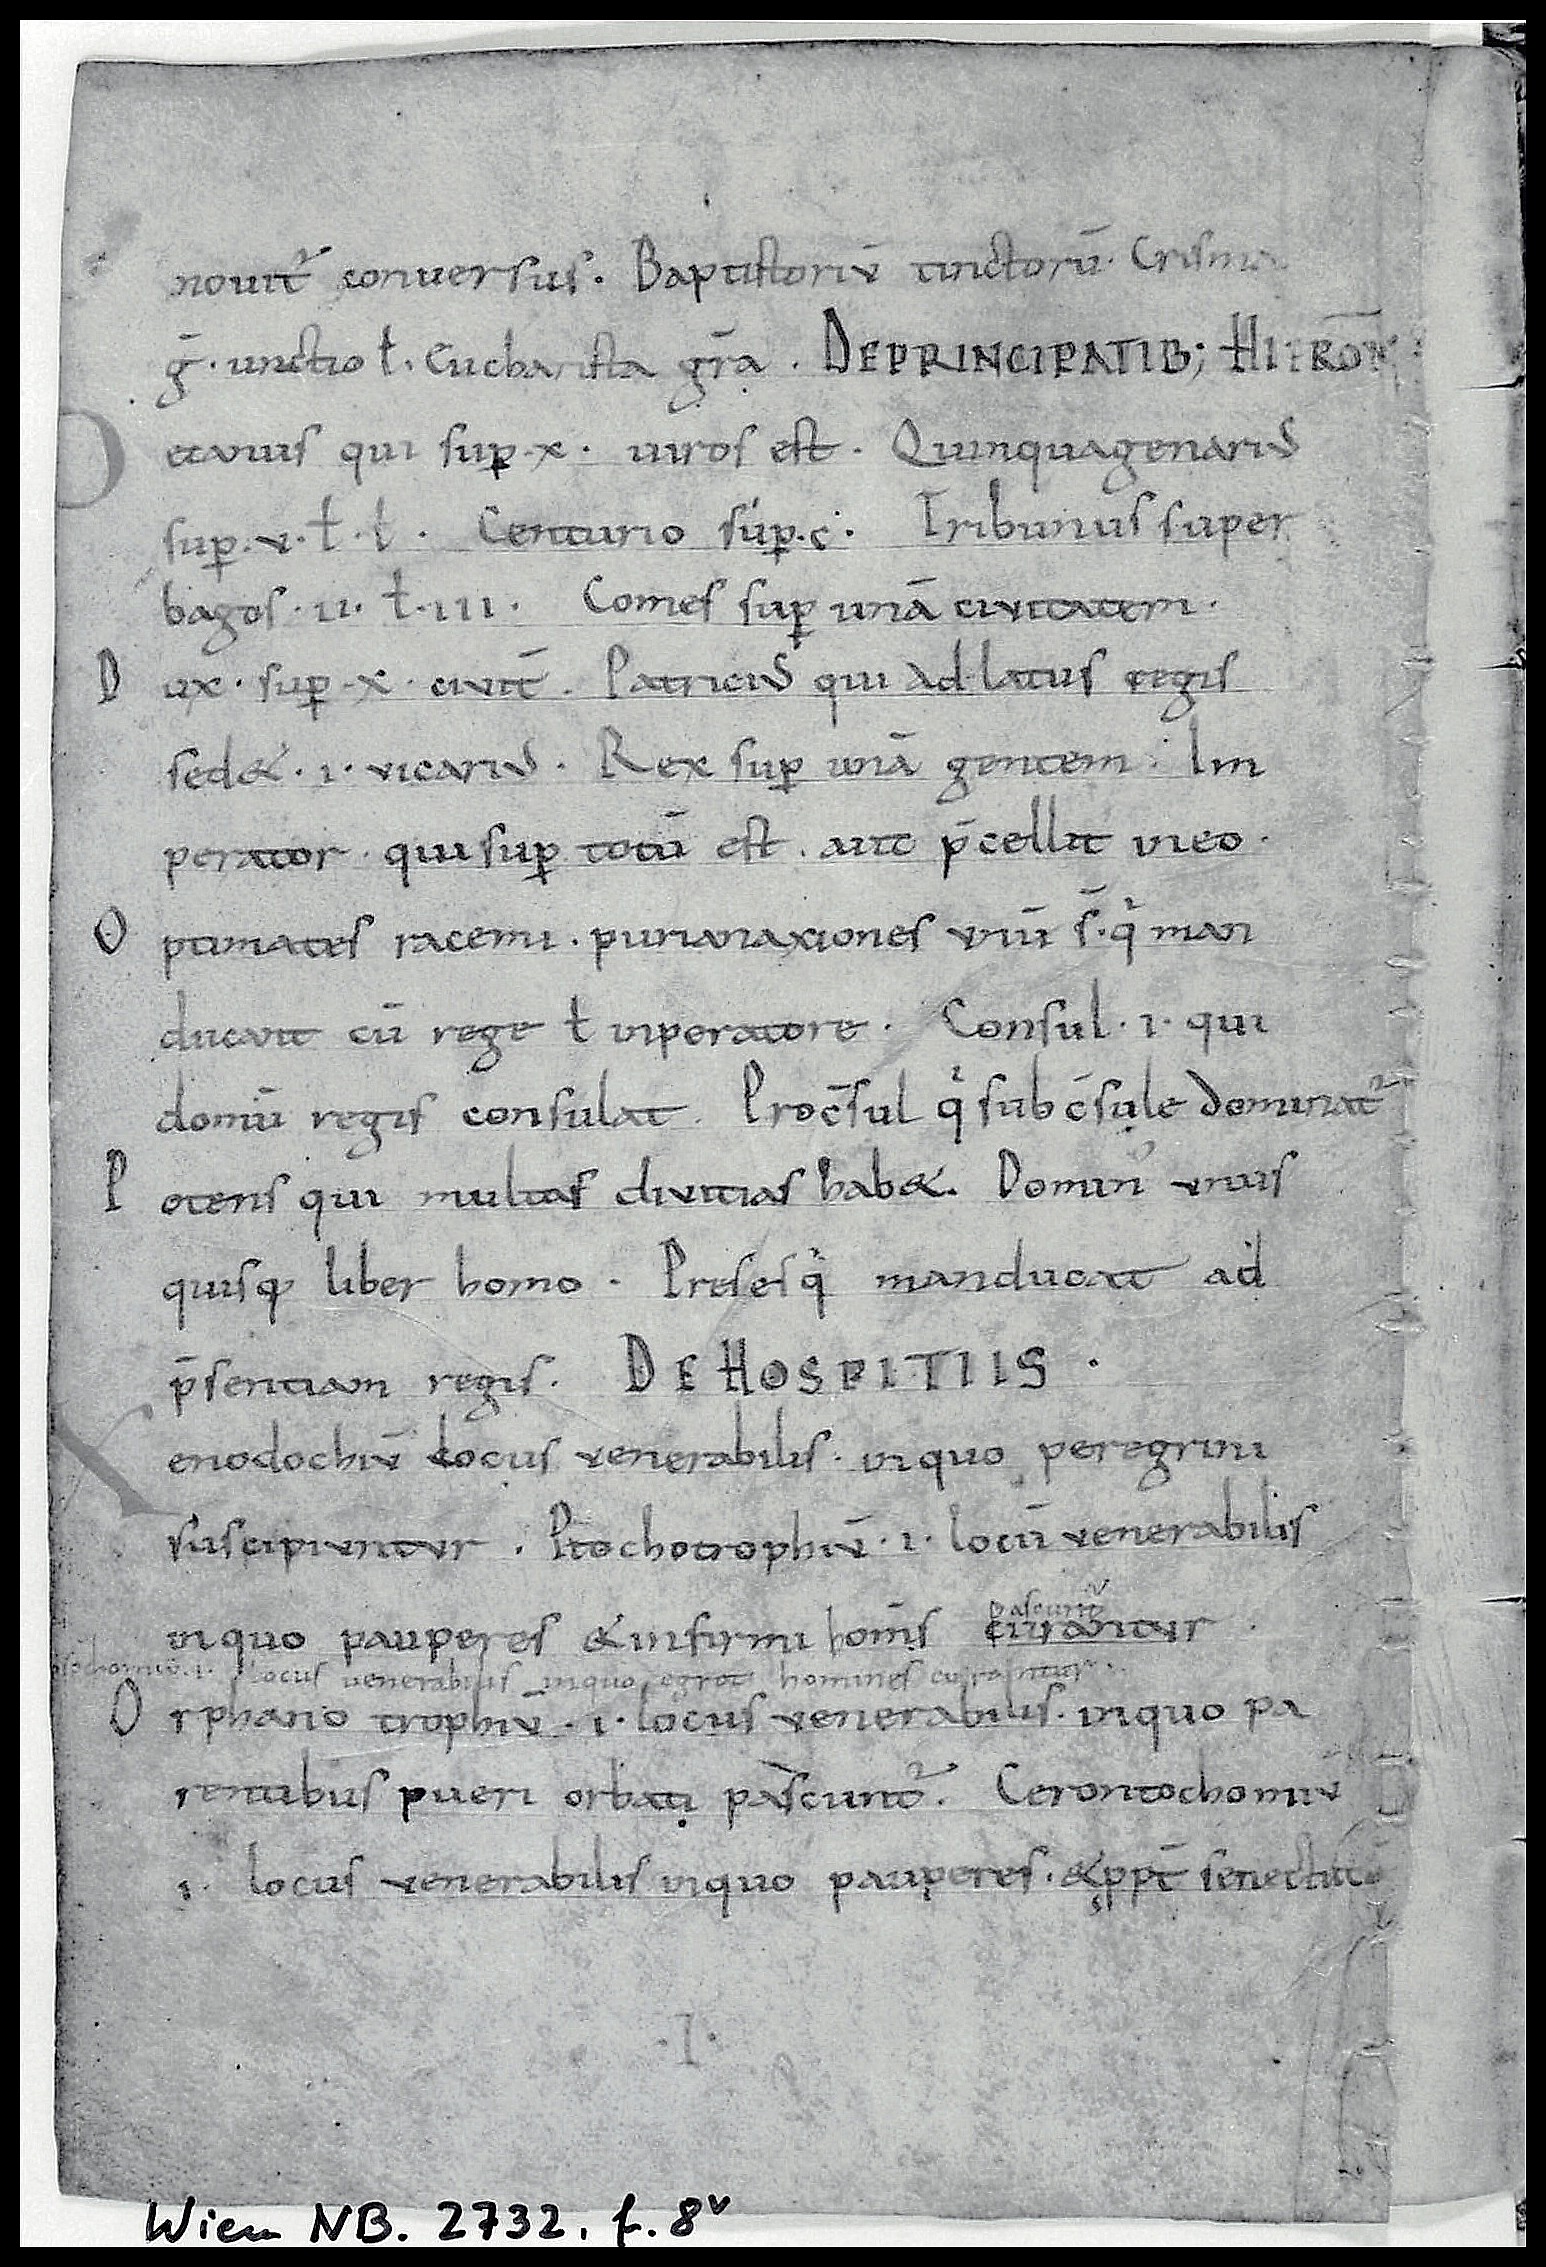 nouit᷑ conuersus. Baptistoriū tinctorū. Crisma
ḡ. unctio ƚ. Eucharistia gr̄a. DEPRINCIPATIB; HIERON̄
D ecanus qui sup̲. x. uiros est. Quinquagenariꝰ
sup̲. v. ƚ. l. Centurio sup̲. c. Tribunus super
bagos. ii. ƚ. iii. Comes sup̲ unā civitatem.
D ux. sup̲. x. civit̄. Patriciꝰ qui ad latus regis
sed&. i. vicariꝰ. Rex sup̲ unā gentem. Im
perator. qui sup̲ totū est. aut p̄cellit in eo.
O ptimates racemi. purianaxiones uiū s̄. qͥ man
ducant cū rege ƚ inperatore. Consul. i. qui
domū regis consulat. Proc̄sul qͥ sub c̄sule dominat᷑
P otens qui multas divitias hab&. Domin᷒ unus
quisq liber homo. Preses qͥ manducat ad
p̄sentiam regis. DE HOSPITIIS.
X enodochiū locus venerabilis. in quo peregrini
suscipiuntur. Ptochotrophiū. i. locū venerabilis
pascunt᷑
in quo pauperes & infirmi homīs curantur.
sochomiū. i. locus venerabilis in quo egroti homines curantur.
O rphano trophiū. i. locus venerabilis. in quo pa
rentibus pueri orbati pascunt᷑. Cerontochomiū
i. locus venerabilis in quo pauperes. & ppt̄ senectutē
.I.
Wien NB. 2732, f. 8ᵛ